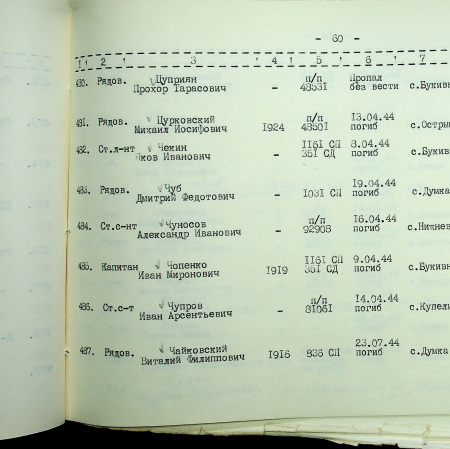 - 60 -
1 2 3 4 5 6 7
480. Рядов. Цуприян п/п Пропал
Прохор Тарасович - 48531 без вести с.Букивн
481. Рядов. Цурковский п/п 13.04.44
Михаил Иосифович 1924 48501 погиб с.Остры
482. Ст.л-нт Чекин 1151 СП 8.04.44
Яков Иванович - 351 СД погиб с.Букивн
483. Рядов. Чуб 19.04.44
Дмитрий Федотович - 1031 СП погиб с.Думка
484. Ст.с-нт Чуносов п/п 16.04.44
Александр Иванович - 92908 погиб с.Нижнев
485. Капитан Чопенко 1161 СП 9.04.44
Иван Миронович 1919 351 СД погиб с.Букивн
486. Ст.с-т Чупров п/п 14.04.44
Иван Арсентьевич - 81061 погиб с.Купели
487. Рядов. Чайковский 23.07.44
Виталий Филиппович 1916 836 СП погиб с.Думка